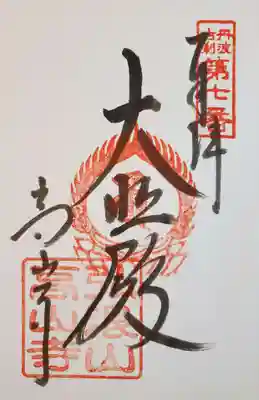 丹波
古刹
第七番
奉拝
大悲殿
高山寺
弘浪山
高山寺